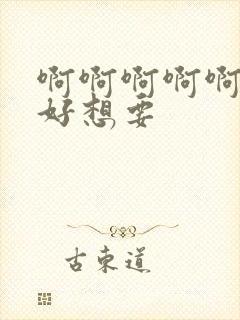 啊啊啊啊啊
好想要
古東道